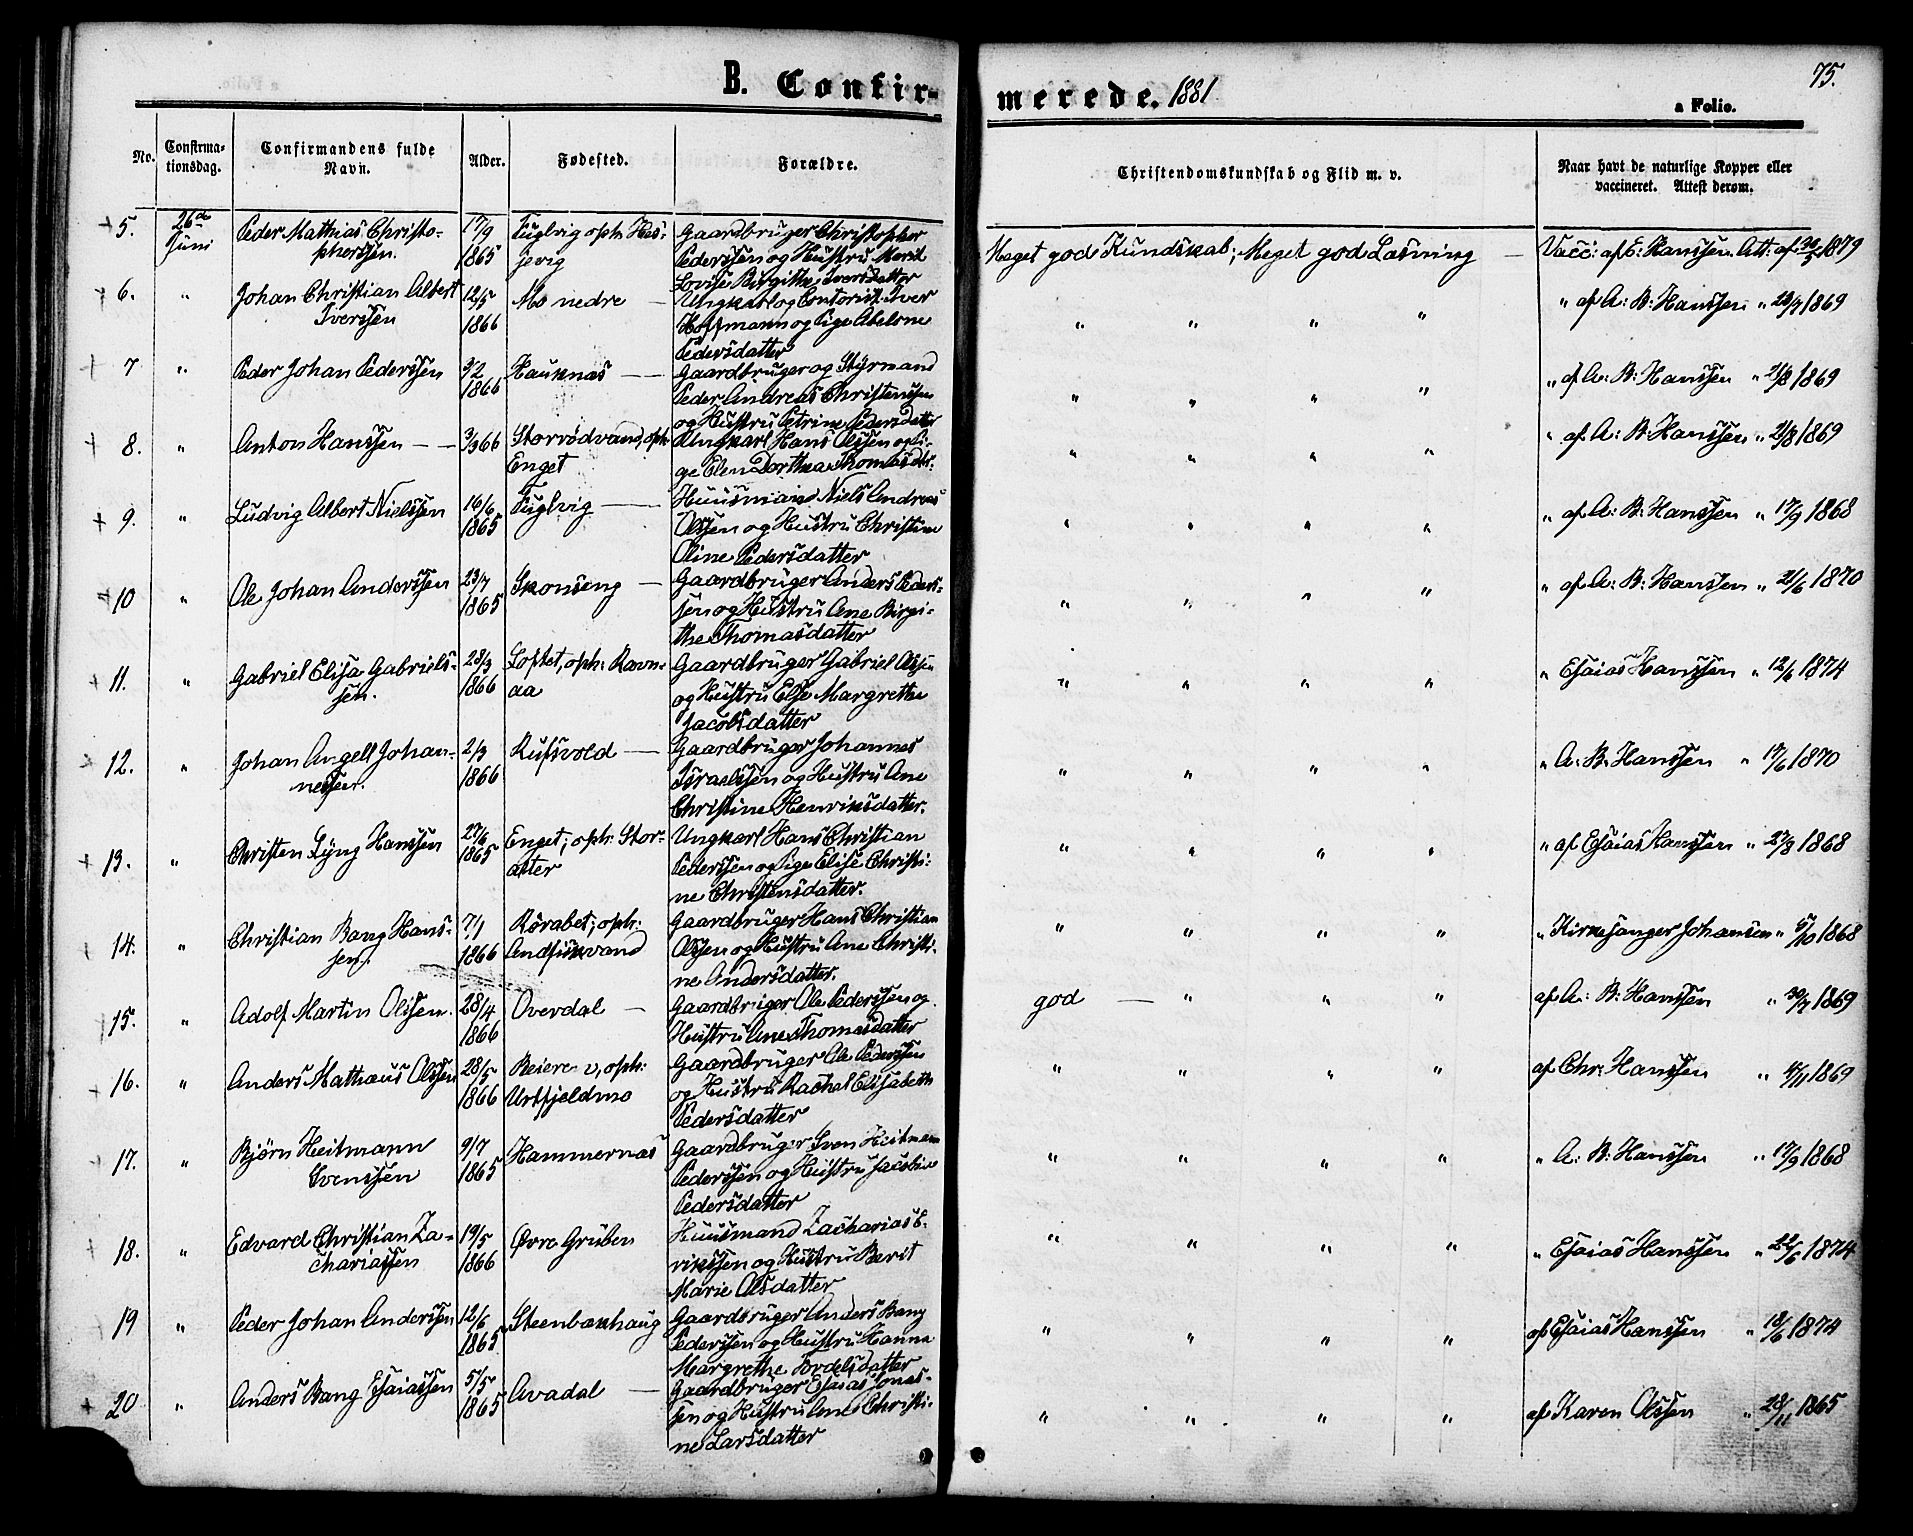 75.
B. Confirmerede. 1881
a Folio.
No. Confirmationsdag. Confirmandens fulde Navn. Alder. Fødested. Forældre. Christendomskundskab og Flid m. v. Naar havt de naturlige Kopper eller vaccineret. Attest derom.
5. 26de Juni Peder Mathias Christophersen. 17/9 1865 Fuglvig oph: Hesjevig Gaardbruger Christopher Pederssen og Hustru Marit Lovise Birgithe Iversdatter Meget god Kundskab; Meget god Læsning — Vacc: af E: Hanssen. Att: af 30/5 1879
6. " Johan Christian Albert Iverssen 12/5 1866 Mo nedre — Ungkarl og Contorist Iver Hoffmann og Pige Abelone Pedersdatter " " " " " af A: B: Hanssen " 23/7 1869
7 " Peder Johan Pederssen 3/2 1866 Hauknæs — Gaardbruger og Styrmand Peder Andreas Christenssen og Hustru Petrine Pedersdatter " " " " " af A: B: Hanssen " 21/8 1869
8. " Anton Hanssen — 3/3 66 Storvodvand, oph: Enget Ungkarl Hans Olssen og Pige Elen Dorthea Thomasdtr. " " " " " af A: B: Hanssen " 21/8 1869
9. " Ludvig Albert Nielssen 16/6 1865 Fuglvig — Huusmand Niels Andreas Olssen og Hustru Christine Oline Pedersdatter " " " " " af A: B: Hanssen " 17/9 1868
10 " Ole Johan Anderssen 23/7 1865 Skonseng — Gaardbruger Anders Pederssen og Hustru Ane Birgithe Thomasdatter " " " " " af A: B: Hanssen " 21/6 1870
11. " Gabriel Elisa Gabrielssen. 28/3 1866 Loftet, oph: Ravnaa Gaardbruger Gabriel Olssen og Hustru Else Margrethe Jacobsdatter " " " " " Esaias Hanssen " 12/6 1874
12. " Johan Angell Johannessen. 2/3 1866 Rufsvold — Gaardbruger Johannes Israelssen og Hustru Ane Christine Henriksdatter. " " " " " A: B: Hanssen " 17/6 1870
13. " Christen Lyng Hanssen 27/6 1865 Enget; oph: Storatter Ungkarl Hans Christian Pederssen og Pige Elise Christine Christensdatter. " " " " " af Esaias Hanssen " 27/8 1868
14. " Christian Bang Hanssen. 7/1 1866 Rørabet; oph: Andfiskvand Gaardbruger Hans Christian Olssen og Hustru Ane Christine Andersdatter. " " " " " Kirkesanger Johansen " 5/10 1868
15. " Adolf Martin Olssen. 28/4 1866 Overdal — Gaardbruger Ole Pederssen og Hustru Ane Thomasdatter god — " " " af A: B: Hanssen " 30/7 1869
16. " Anders Mathæus Olssen 28/5 1866 Beieren, oph: Urtfjeldmo Gaardbruger Ole Pederssen og Hustru Rachel Elisabeth Pedersdatter " " " " af Chr: Hanssen " 4/11 1869
17. " Bjørn Heitmann Svenssen 9/7 1865 Hammernæs Gaardbruger Sven Heitmann Pederssen og Hustru Jacobine Pedersdatter " " " " " A: B: Hanssen " 17/9 1868
18. " Edvard Christian Zachariassen 19/5 1866 Øvre Gruben Huusmand Zacharias Erikssen og Hustru Berit Marie Olsdatter " " " " " Esaias Hanssen " 22/6 1874
19 " Peder Johan Anderssen 12/6 1865 Steenbækhaug Gaardbruger Anders Bang Pederssen og Hustru Hanna Margrethe Tordelsdatter " " " " af Esaias Hanssen " 18/6 1874
20 " Anders Bang Esaiassen 5/5 1865 Avadal — Gaardbruger Esaias Jonassen og Hustru Ane Christine Larsdatter " " " " af Karen Olssen " 28/11 1865